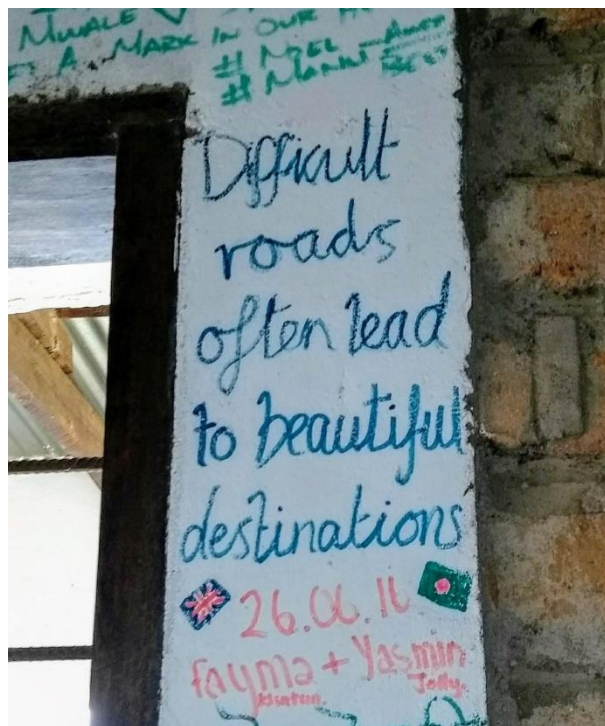 MWALE
A MARK IN OUR
# NOEL
# MANN
Difficult
roads
often lead
to beautiful
destinations
26.06.16
fayma + Yasmin
Khatun. Jolly.